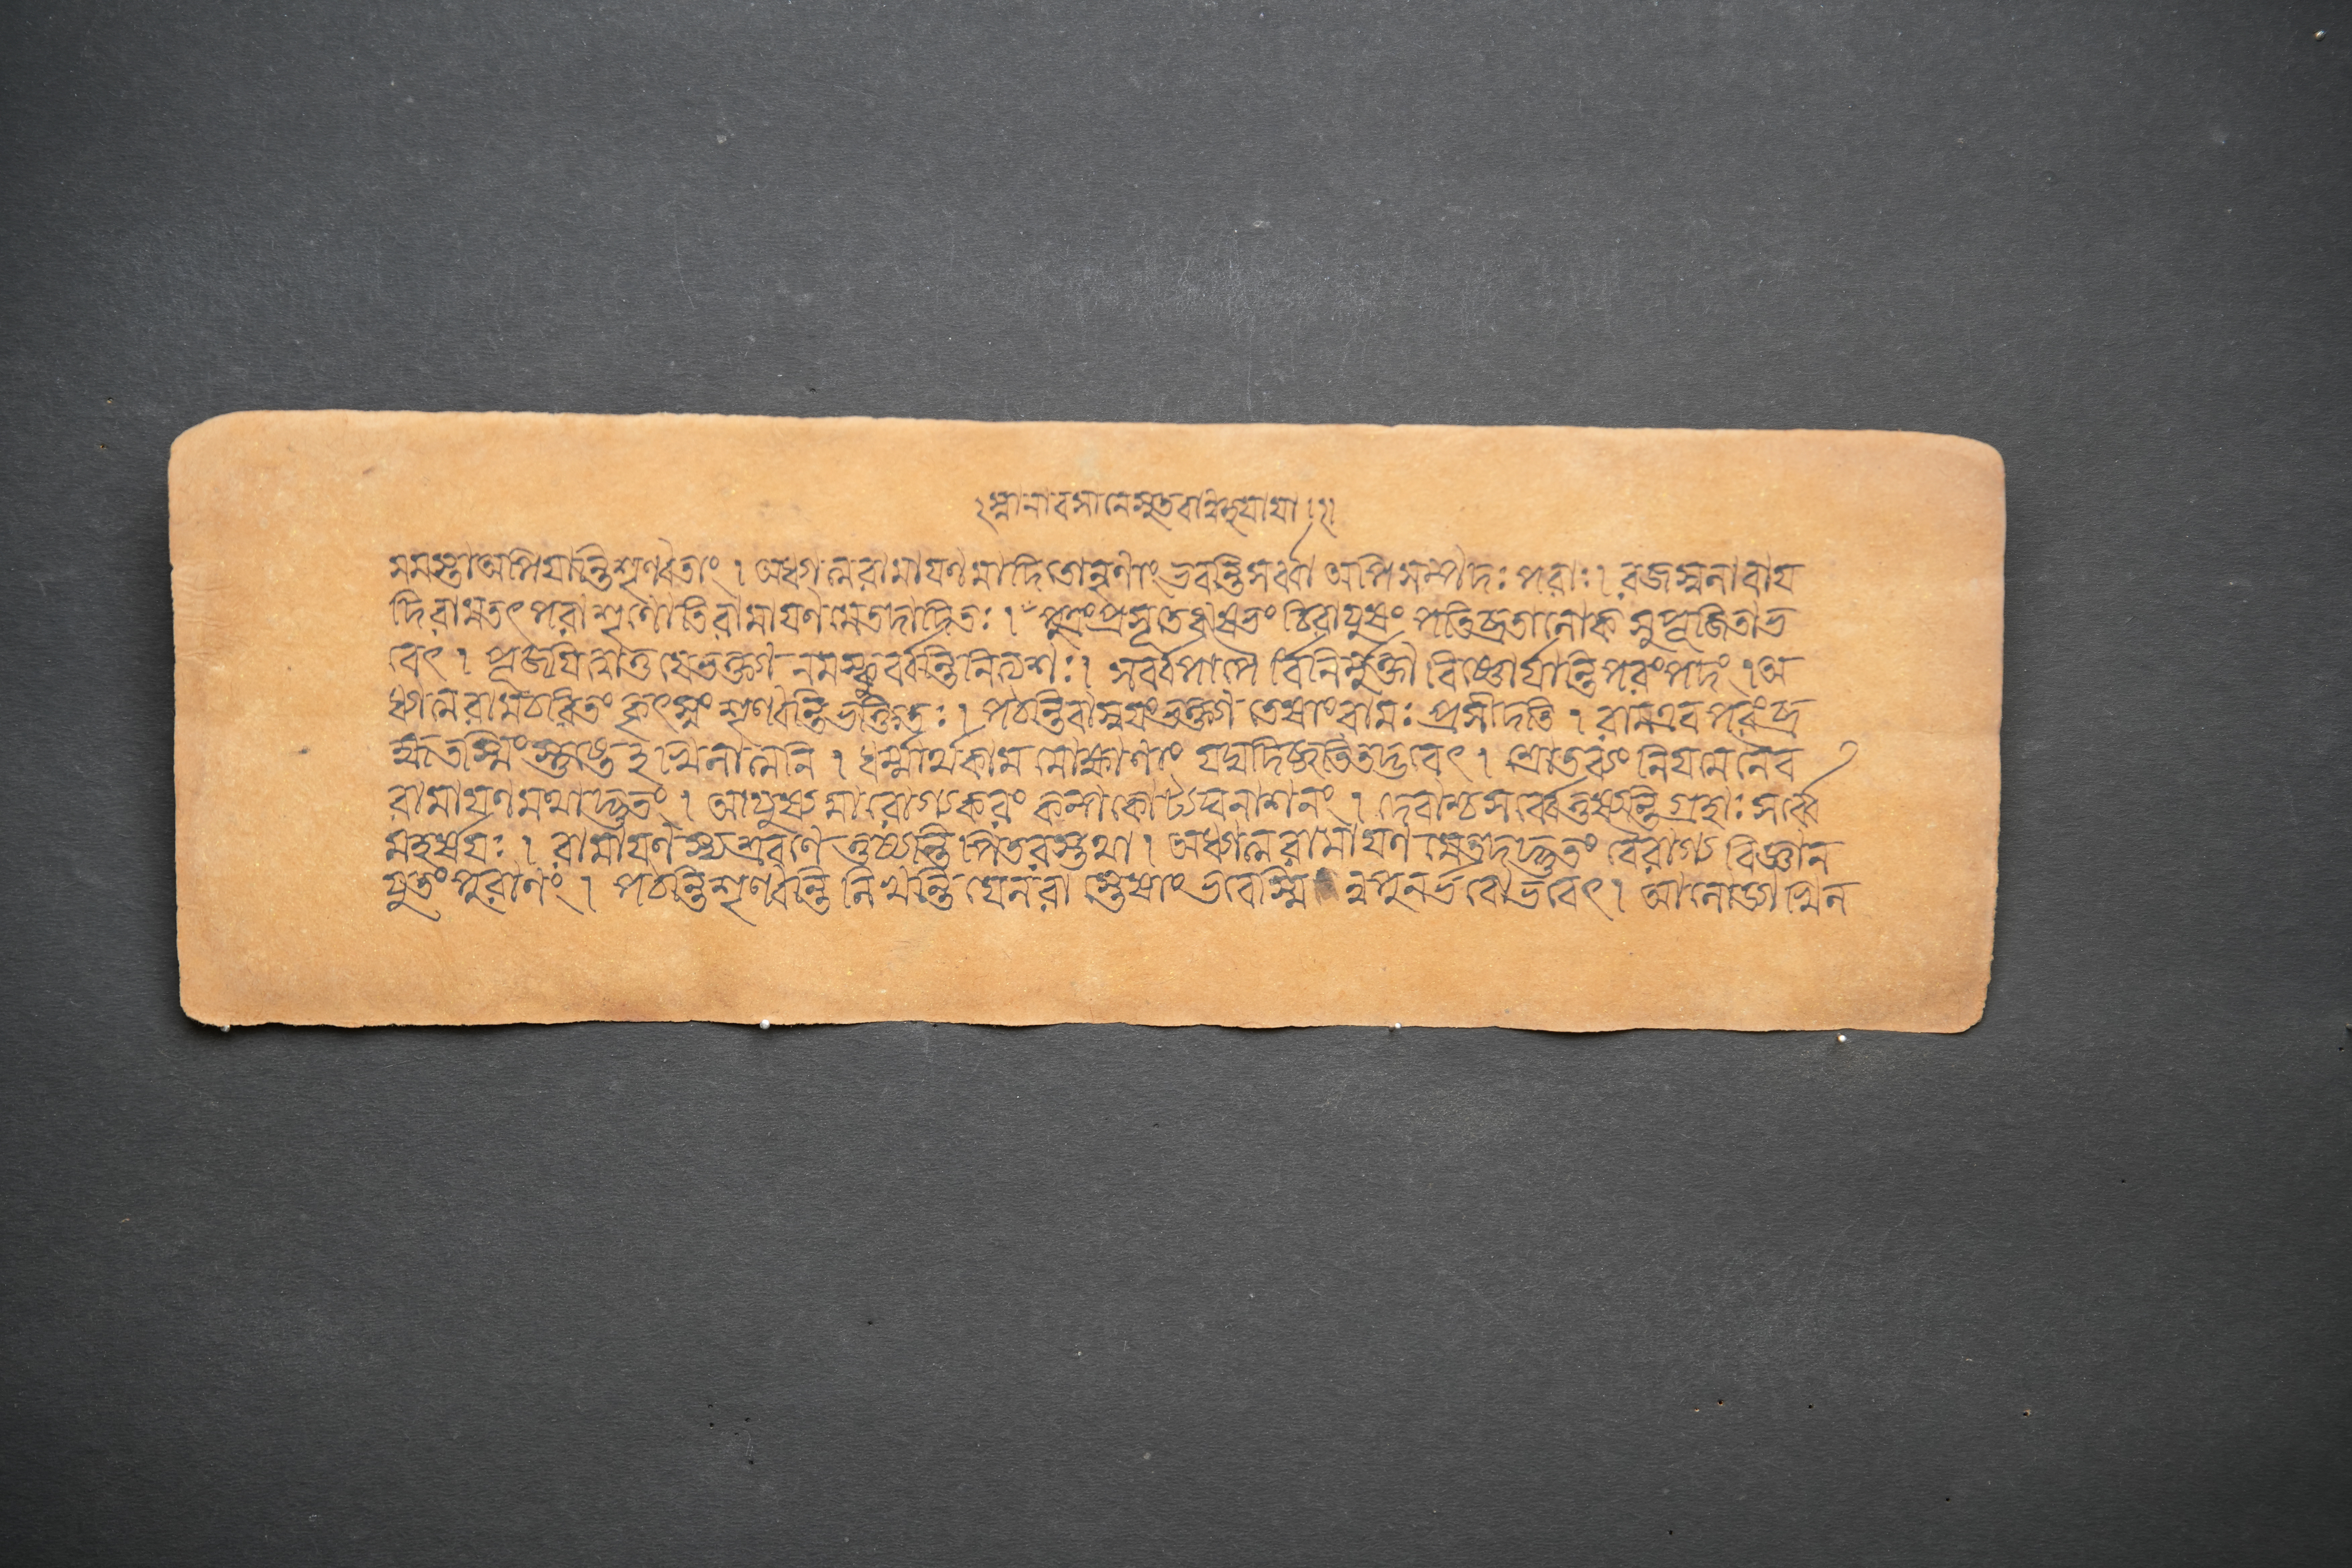 ২ স্নানাবসানেসুতবা
মমস্তাঅপিযান্তিশৃণ্বতাং । অধ্যাত্মরামাযণমাদিতোনৃণাং ভবন্তিসর্ব্বা অপি সম্পদঃ পরাঃ । রজস্বলাবায
দিরামতৎপরাশৃণোতিরামাযণমেতদাদিতঃ । পুত্রংপ্রসূতেঋষভংচিরাযুষং পতিব্রতালোকসুপূজিতাভ
বেৎ । পূজযিত্বাতুযেভক্ত্যানমস্কুর্ব্বন্তিনিত্যশঃ । সর্ব্বপাপৈর্বিনির্মুক্তা বিষ্ণোর্যান্তিপরংপদং । অ
ধ্যাত্মরামচরিতং কৃৎস্নং শৃণ্বন্তিভক্তিতঃ । পঠন্তিবাস্বযংভক্ত্যাতেষাংরামঃ প্রসীদতি । রামএবপরংব্র
হ্মতস্মিংস্তুষ্টেখিলাত্মনি । ধর্ম্মার্থকামমোক্ষাণাং যদ্যদিচ্ছতিতদ্ভবেৎ । শ্রোতব্যং নিযমেনৈব
রামাযণমথাদ্ভুতং । আযুষ্যমারোগ্যকরং কল্পকোট্যঘনাশনং । দেবাশ্চসর্ব্বেতুষ্যন্তি গ্রহাঃ সর্ব্বে
মহর্ষযঃ । রামাযণস্যশ্রবণে তুষ্যন্তি পিতরস্তথা । অধ্যাত্মরামাযণমেতদদ্ভুতং বৈরাগ্যবিজ্ঞান
যুতং পুরাণং । পঠন্তিশৃণ্বন্তিলিখন্তিযেনরা স্তেষাংভবেস্মিন্নপুনর্ভবোভবেৎ । আলোড্যাখিল